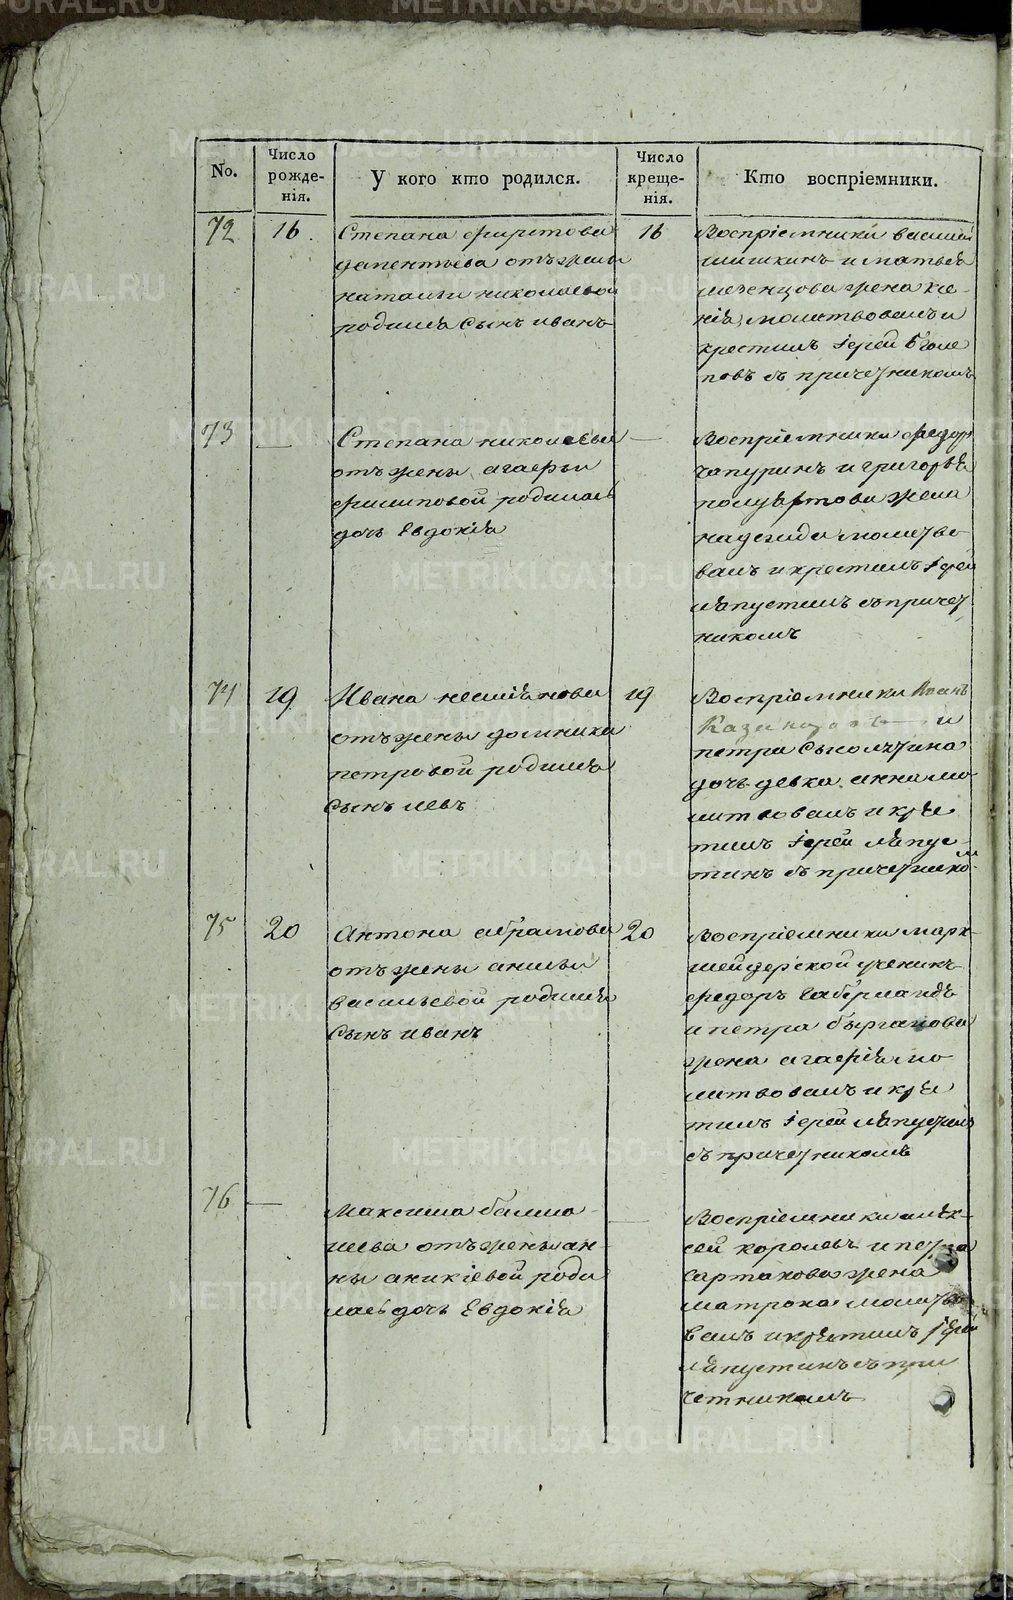 No.
Число рожде-нія.
У кого кто родился.
Число креще-нія.
Кто воспріемники.
72
16
Степана фирстова
отъ жены
натальи николаевой
родился сынъ иванъ
16
Воспріемники василій
шишкинъ и матвея
мезенцова жена ксе-
нія, молитвовалъ и
крестилъ іерей
повъ съ причетникомъ
73
—
Степана николаева
отъ жены агафьи
филиповой родилась
дочь Евдокія
—
Воспріемники федоръ
чапуринъ и григорья
жена
надежда молитво
валъ и крестилъ іерей
лапустинъ съ причет
никомъ
74
19
Ивана
отъ жены домники
петровой родился
сынъ левъ
19
Воспріемники Иванъ
и
петра
дочь девка анна мо
литвовалъ и кре
тилъ іерей лапус-
тинъ съ причетнико
75
20
Антона абрамова
отъ жены анисьи
васильевой родился
сынъ иванъ
20
Воспріемники марк
шейдерской ученикъ
федоръ габерландъ
и петра
жена агафія мо
литвовалъ и кре
тилъ іерей лапустинъ
съ причетникомъ
76
—
Максима балма
шева отъ жены ан-
ны аникіевой роди
лась дочь Евдокія
—
Воспріемники алек-
сей королевъ и петра
сартакова жена
матрона молитво
валъ и крестилъ іерей
лапустинъ съ при
четникомъ